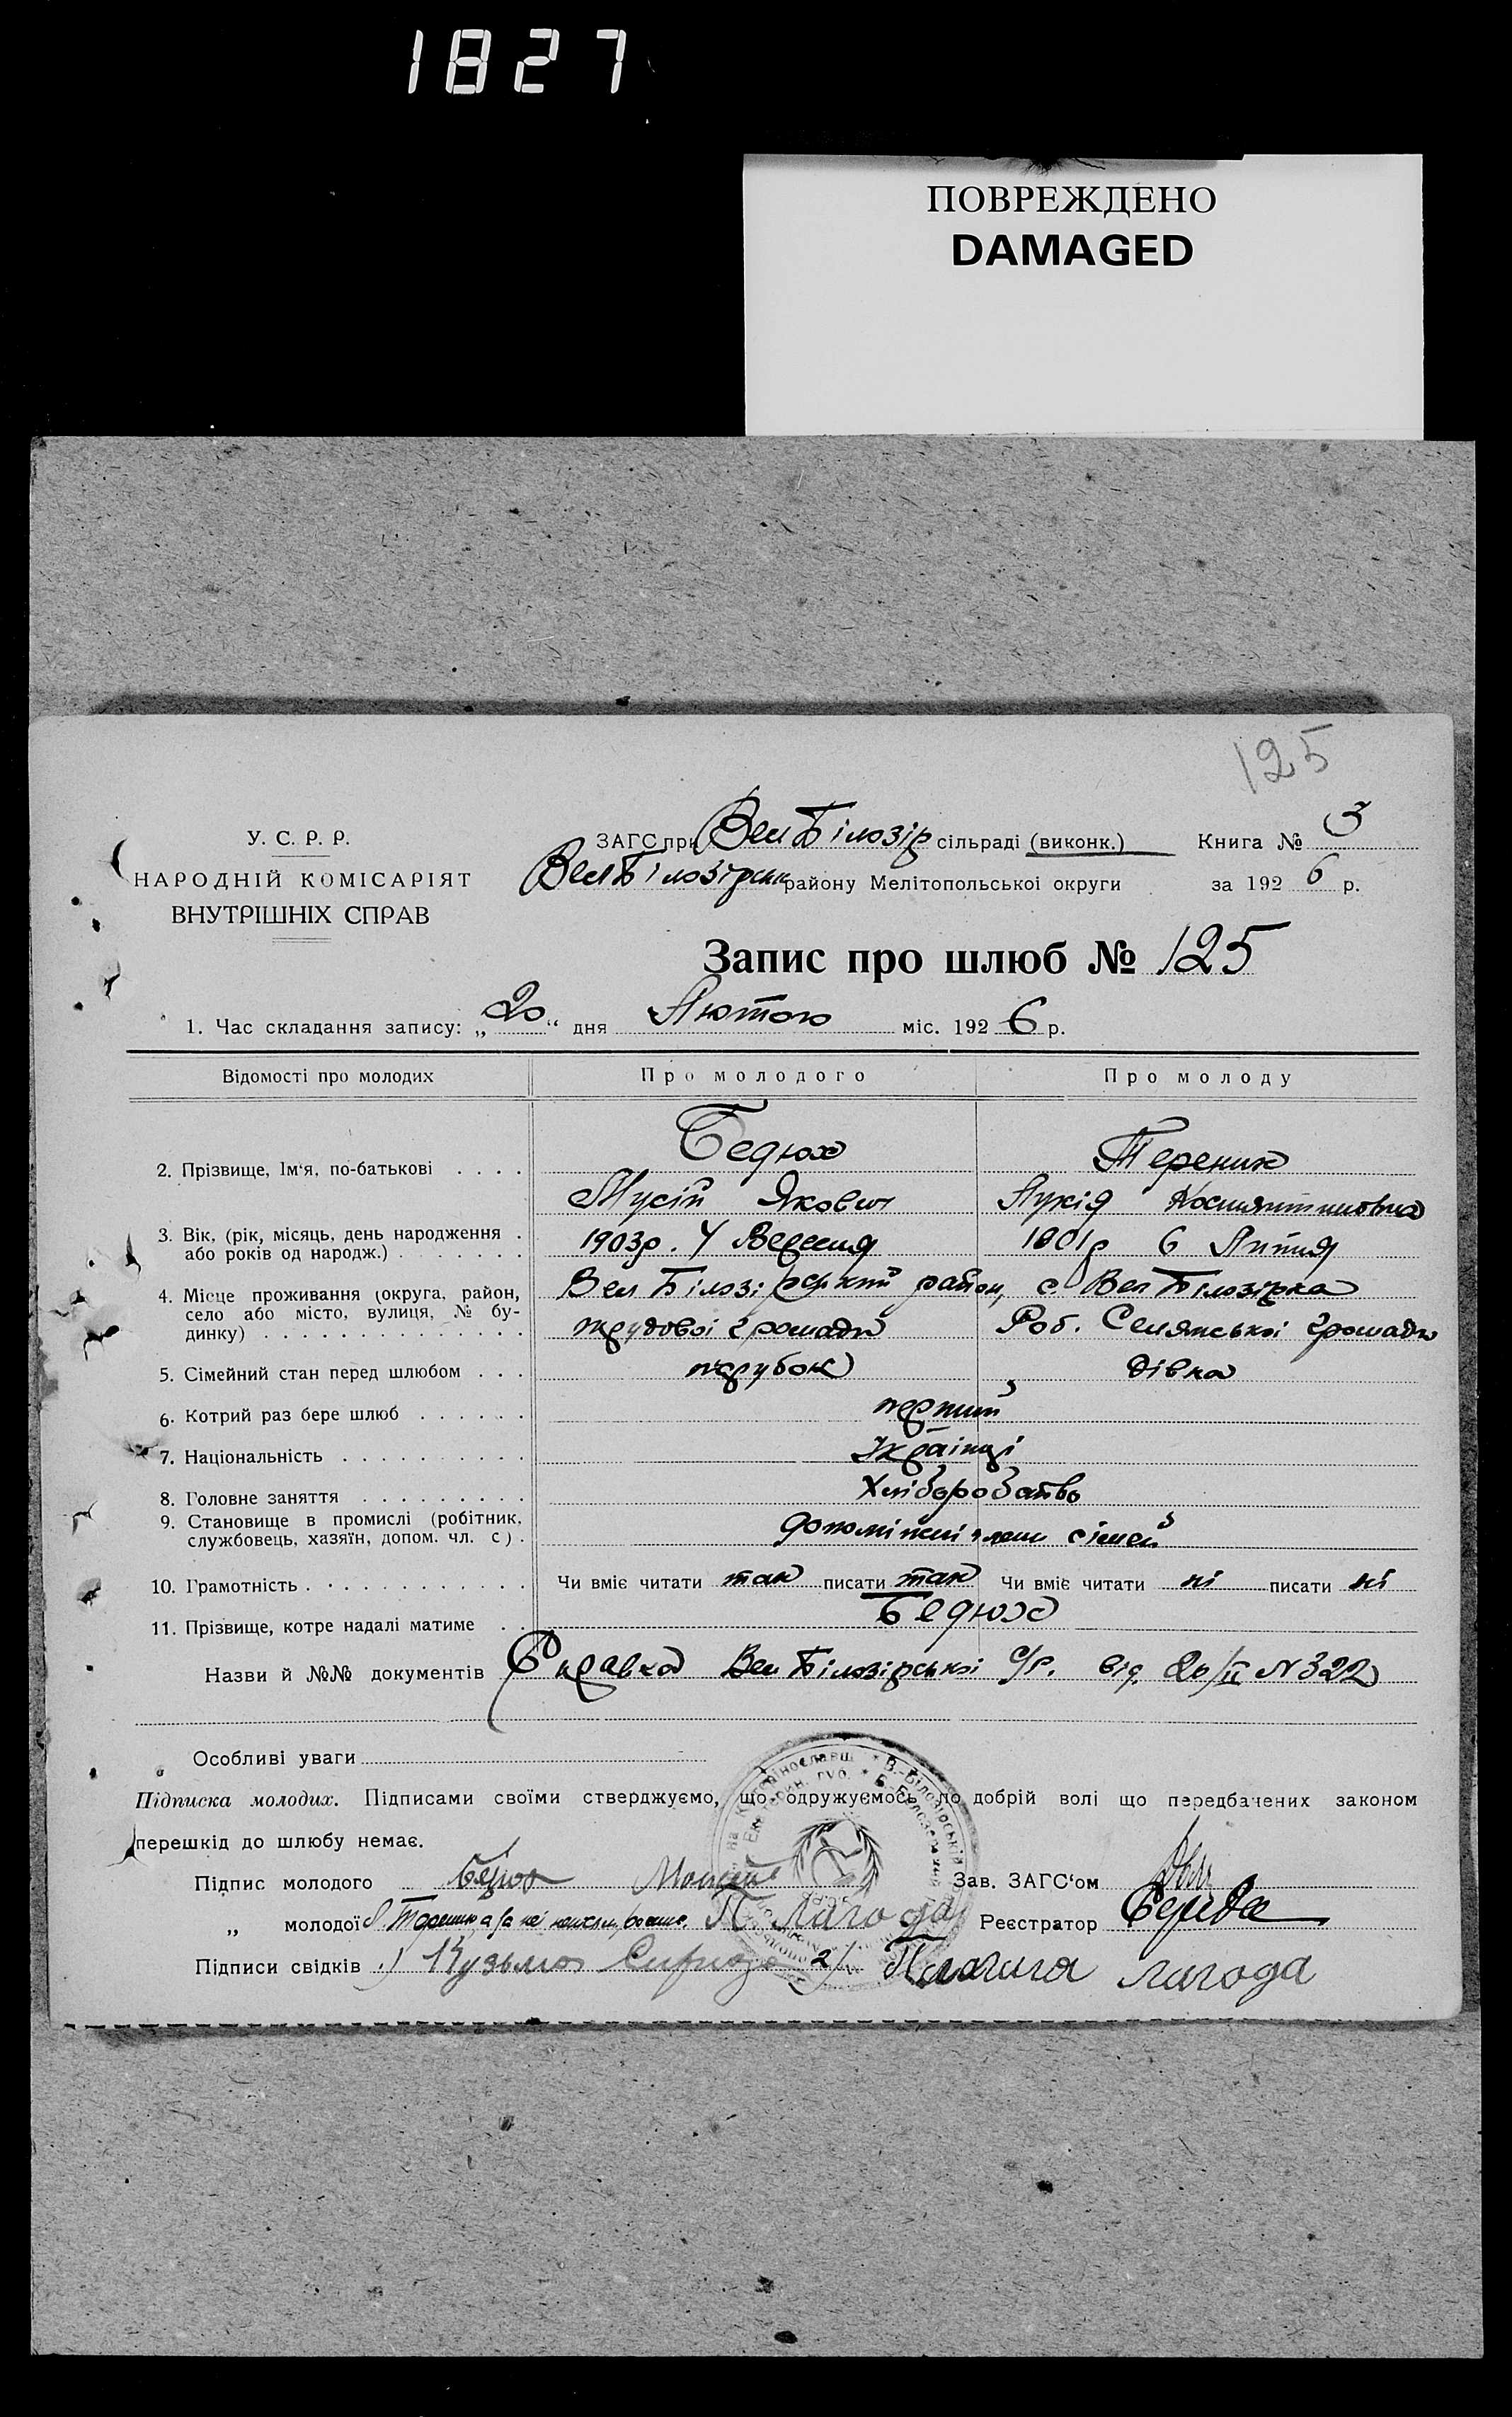 1827
ПОВРЕЖДЕНО
DAMAGED
125
У. С. Р. Р.
НАРОДНІЙ КОМІСАРІЯТ
ВНУТРІШНІХ СПРАВ
ЗАГС при Вел Білозір сільраді (виконк.) Книга № 3
Вел Білозірськ району Мелітопольськоі округи за 1926 р.
Запис про шлюб № 125
1. Час складання запису: „20“ дня Лютого міс. 1926 р.
Відомості про молодих Про молодого Про молоду
2. Прізвище, Ім‘я, по-батькові . . . . Бедюх Тереник
Мусій Якович Лукія Костянтиновна
3. Вік, (рік, місяць, день народження . 1903р. 4 Вересня 1901р 6 Липня
або років од народж.) . . . . . . .
4. Місце проживання (округа, район, Вел Білозірський район, с. Вел Білозірка
село або місто, вулиця, № бу-
динку) . . . . . . . . . . . . . . трудової громади Роб. Селянської громади
5. Сімейний стан перед шлюбом . . . парубок дівка
6. Котрий раз бере шлюб . . . . . . перший
7. Національність . . . . . . . . . . Українці
8. Головне заняття . . . . . . . . . Хліборобство
9. Становище в промислі (робітник,
службовець, хазяїн, допом. чл. с) . допоміжні члени сімей
10. Грамотність . . . . . . . . . . . . Чи вміє читати так писати так Чи вміє читати ні писати ні
11. Прізвище, котре надалі матиме . . Бедюх
Назви й №№ документів Справка Вел Білозірської С/Р. від 20/II N 322
Особливі уваги
Підписка молодих. Підписами своїми стверджуємо, що одружуємось по добрій волі що передбачених законом
перешкід до шлюбу немає.
Підпис молодого Бедюх Зав. ЗАГС‘ом
„ молодої П. Лагода Реєстратор Середа
Підписи свідків 1) Кузьма 2) Пелагия Лагода